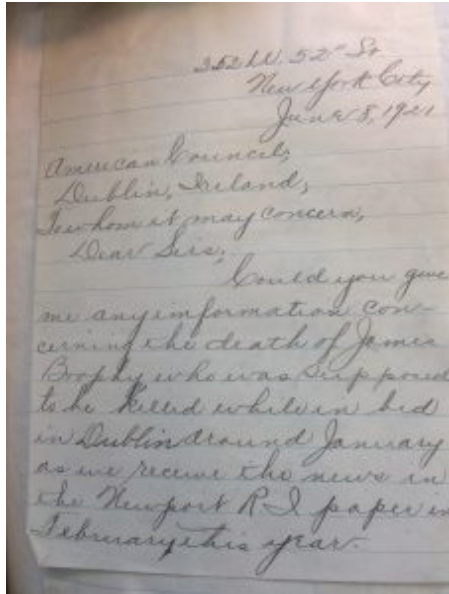 352 W. 52nd St
New York City
June 8, 1921
American Council,
Dublin, Ireland,
To whom it may concern,
Dear Sirs,
Could you give
me any imformation con-
cerning the death of James
Brophy who was supposed
to be killed while in bed
in Dublin around January
as we receive the news in
the Newport R I paper in
February this year.